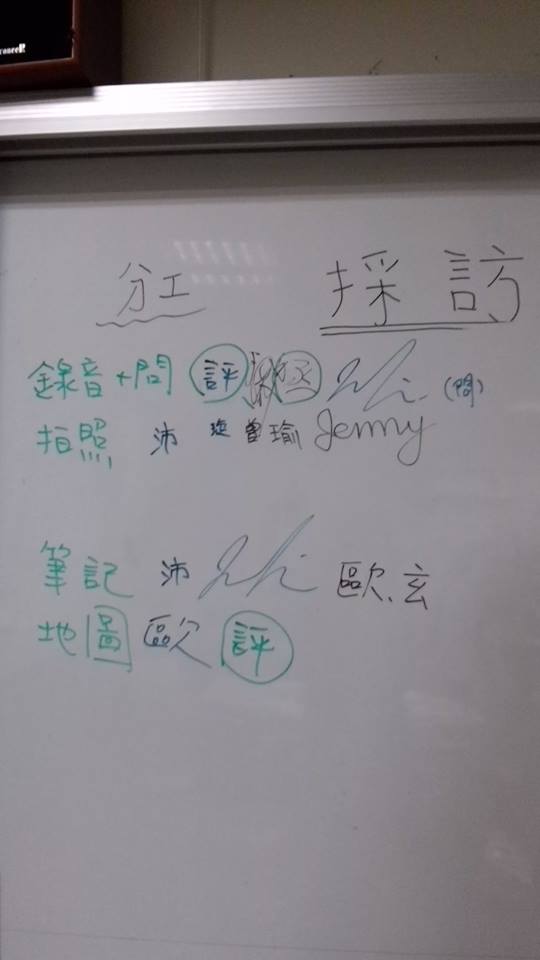 分工 採訪
錄音+問 評 丞 (問)
拍照 沛 曾瑜 Jenny
筆記 沛 歐、玄
地圖 歐 評